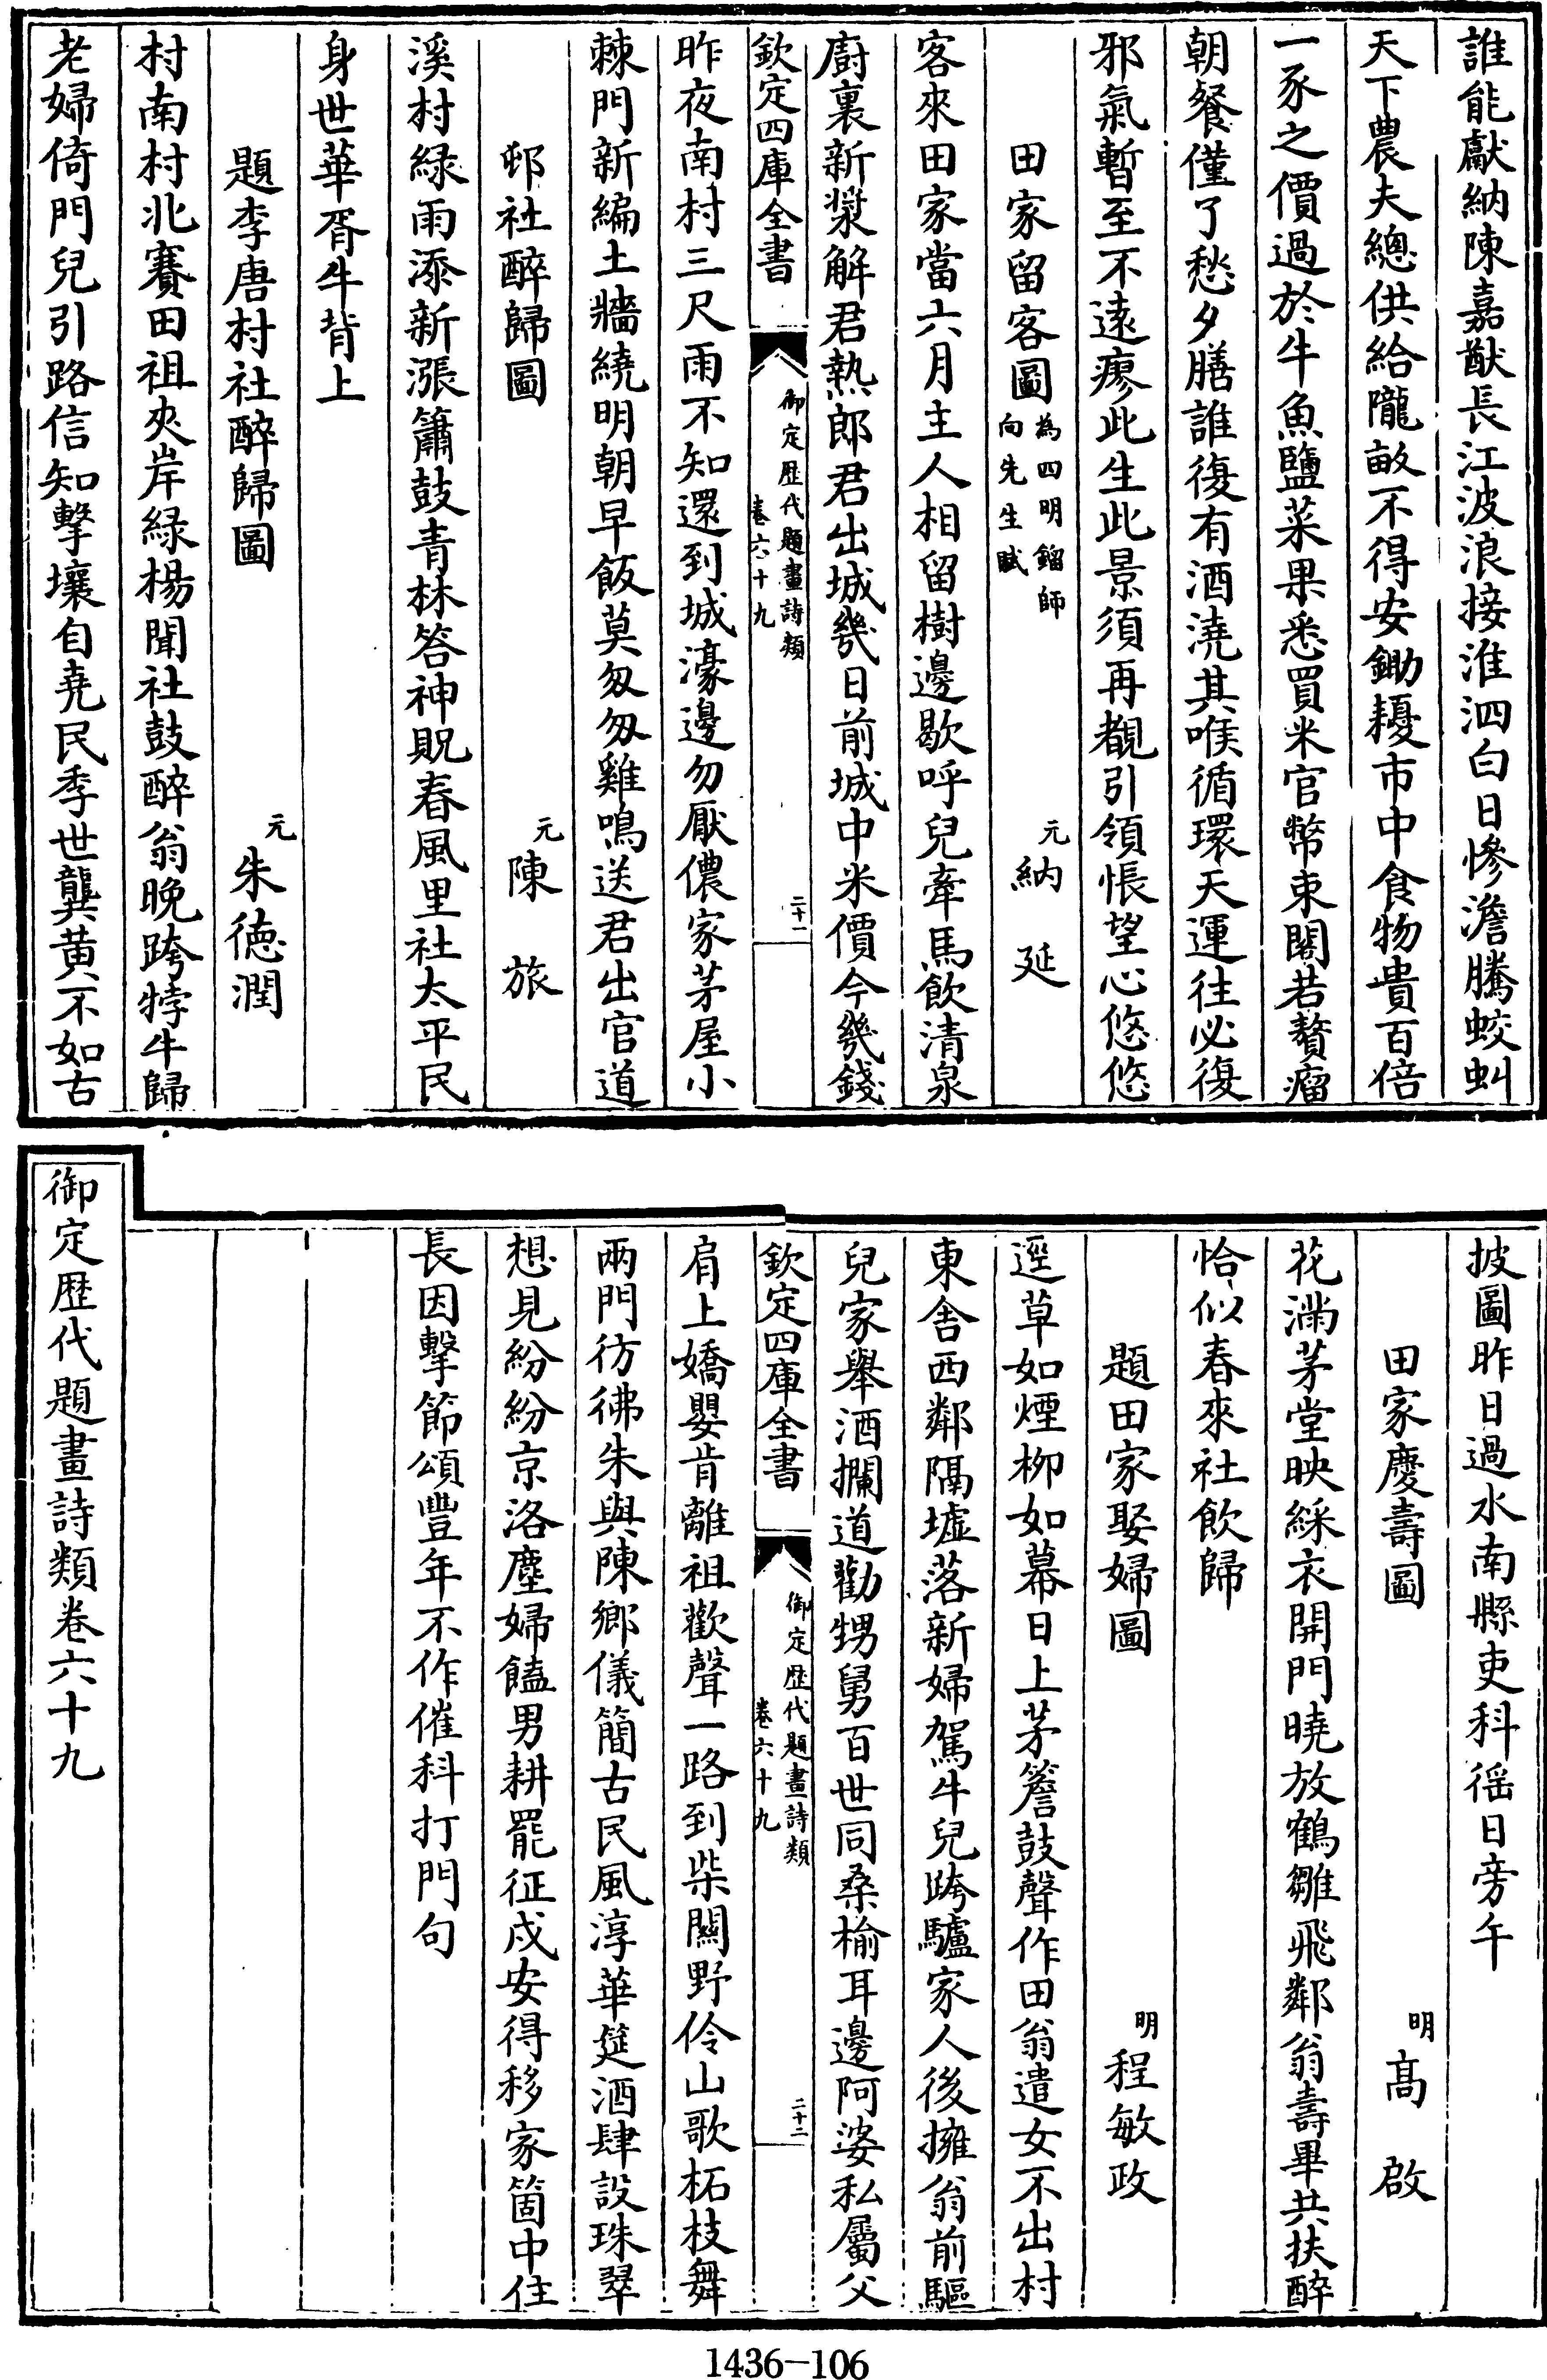 誰能獻納陳嘉猷長江波浪接淮泗白日慘澹騰蛟虬
天下農夫總供給隴畝不得安鋤耰市中食物貴百倍
一豕之價過於牛魚鹽菜果悉買米官幣束閣若贅瘤
朝餐僅了愁夕膳誰復有酒澆其喉循環天運往必復
邪氣暫至不遠瘳此生此景須再覩引領悵望心悠悠
田家留客圖為四明鎦師向先生賦 元納延
客來田家當六月主人相留樹邊歇呼兒牽馬飲清泉
廚裏新漿解君熱郎君出城幾日前城中米價今幾錢
欽定四庫全書 御定歷代題畫詩類卷六十九 二十一
昨夜南村三尺雨不知還到城濠邊勿厭儂家茅屋小
棘門新編土牆繞明朝早飯莫匆匆雞鳴送君出官道
邨社醉歸圖 元陳旅
溪村緑雨添新漲簫鼓青林答神貺春風里社太平民
身世華胥牛背上
題李唐村社醉歸圖 元朱德潤
村南村北賽田祖夾岸緑楊聞社鼓醉翁晚跨牸牛歸
老婦倚門兒引路信知擊壤自堯民季世龔黄不如古
披圖昨日過水南縣吏科徭日旁午
田家慶壽圖 明髙啟
花滿茅堂映綵衣開門曉放鶴雛飛鄰翁壽畢共扶醉
恰似春來社飲歸
題田家娶婦圖 明程敏政
逕草如煙柳如幕日上茅簷鼓聲作田翁遣女不出村
東舎西鄰隔墟落新婦駕牛兒跨驢家人後擁翁前驅
兒家舉酒攔道勸甥舅百世同桑榆耳邊阿婆私屬父
欽定四庫全書 御定歷代題畫詩類卷六十九 二十二
肩上嬌嬰肯離祖歡聲一路到柴闗野伶山歌柘枝舞
兩門彷彿朱與陳鄉儀簡古民風淳華筵酒肆設珠翠
想見紛紛京洛塵婦饁男耕罷征戍安得移家箇中住
長因擊節頌豐年不作催科打門句
御定歷代題畫詩類卷六十九
1436-106